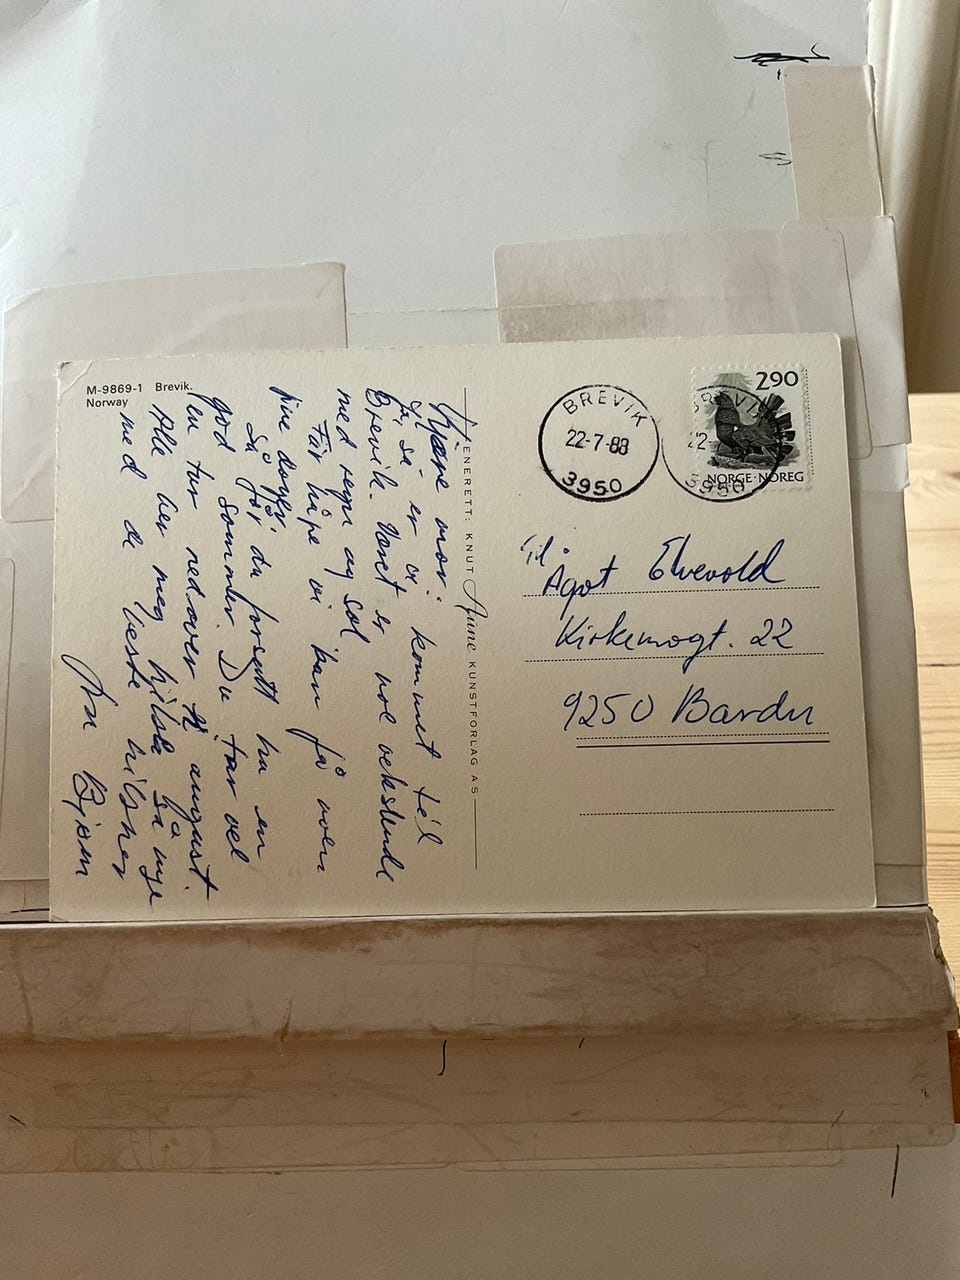 M-9869-1 Brevik.
Norway
Kjære mor!
Ja, så er vi kommet til
Brevik. Været er noe vekslende
med regn og sol
Får håpe vi kan få noen
fine dager.
Så får du forsatt ha en
god sommer. Du tar vel
en tur nedover til august.
Alle her meg hilsa så mye
med de beste hilsner
Bjørn
ENERETT: KNUT Aune KUNSTFORLAG AS
BREVIK
22-7-88
3950
BREVIK
22-
3950
290
NORGE·NOREG
Til
Ågot Elvevold
Kirkemogt. 22
9250 Bardu